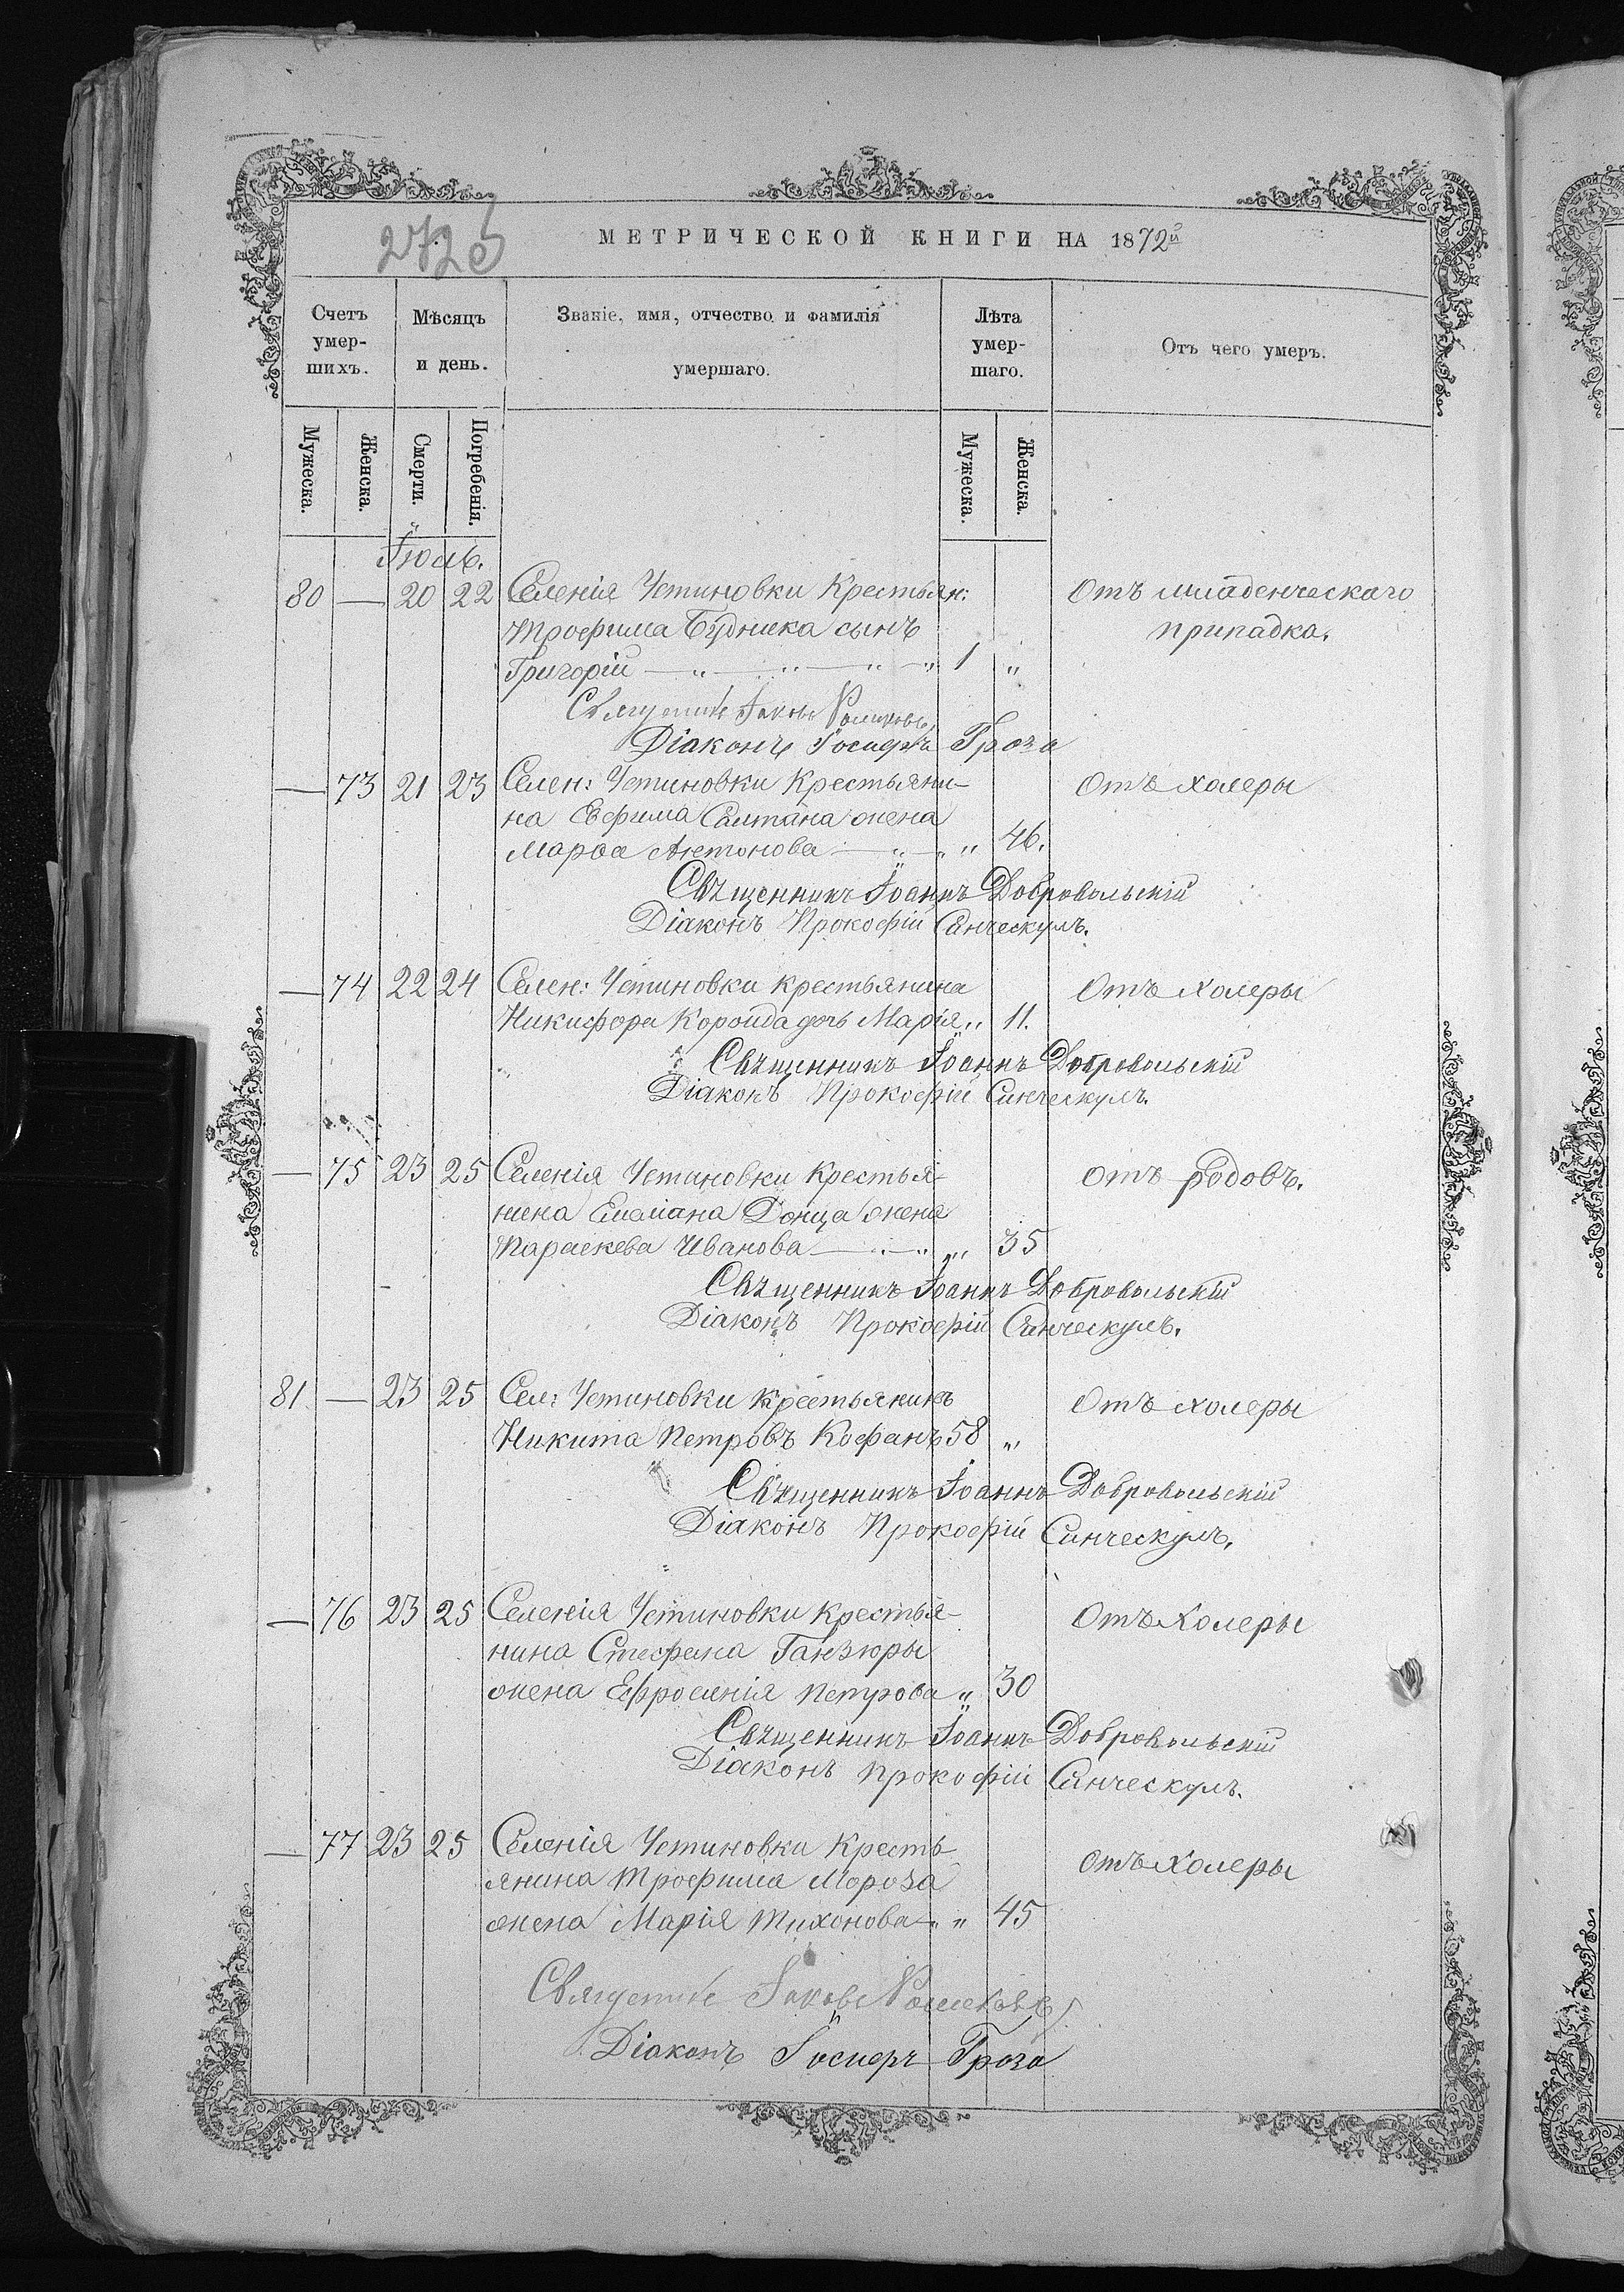 272об
МЕТРИЧЕСКОЙ КНИГИ НА 1872й
Счетъ умер-шихъ.
Мѣсяцъ и день.
Званіе, имя, отчество и фамилія умершаго.
Лѣта умер-шаго.
Отъ чего умеръ.
Мужеска.
Женска.
Смерти.
Погребенія.
Мужеска.
Женска.
Іюль.
80 — 20 22 Селенія Устиновки Крестьян: Отъ младенческаго
Трофима Будника сынъ припадка.
Григорій — " — " — " — " 1 "
Священникъ Іаковъ
Діаконъ Іосифъ Гроза
— 73 21 23 Селен: Устиновки Крестьяни- Отъ холеры
на Евфима Салтана жена
Марѳа Антонова — " — " " 46.
Свѧщенникъ Іоаннъ Добровольскій
Діаконъ Прокофій Синческулъ.
— 74 22 24 Селен: Устиновки крестьянина Отъ холеры
Никифора Коройда дочь Марія " 11.
Свѧщенникъ Іоаннъ Добровольскій
Діаконъ Прокофій Синческулъ.
— 75 23 25 Селенія Устиновки Крестья- отъ родовъ.
нина Емеліана Донца жена
Параскева Иванова — " — " " 35
Свѧщенникъ Іоаннъ Добровольскій
Діаконъ Прокофій Синческулъ.
81 — 23 25 Сел: Устиновки крестьянинъ Отъ холеры
Никита Петровъ Кофанъ 58 "
Свѧщенникъ Іоаннъ Добровольскій
Діаконъ Прокофій Синческулъ.
— 76 23 25 Селенія Устиновки Крестья- Отъ холеры
нина Стефана Ганзюры
жена Ефросинія Петрова " 30
Свѧщенникъ Іоаннъ Добровольскій
Діаконъ Прокофій Синческулъ.
— 77 23 25 Селенія Устиновки Кресть- Отъ холеры
янина Трофима Мороза
жена Марія Тихонова — " " 45
Священникъ Іаковъ
Діаконъ Іосифъ Гроза